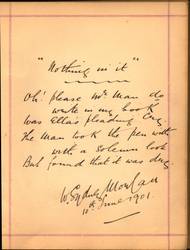 "Nothing in it"
Oh! please Mr Man do
write in my book
Was Ella's pleading cry
The man took the pen with
with a solemn look
But found that it was dry.
W. Sydney
10th June 1901